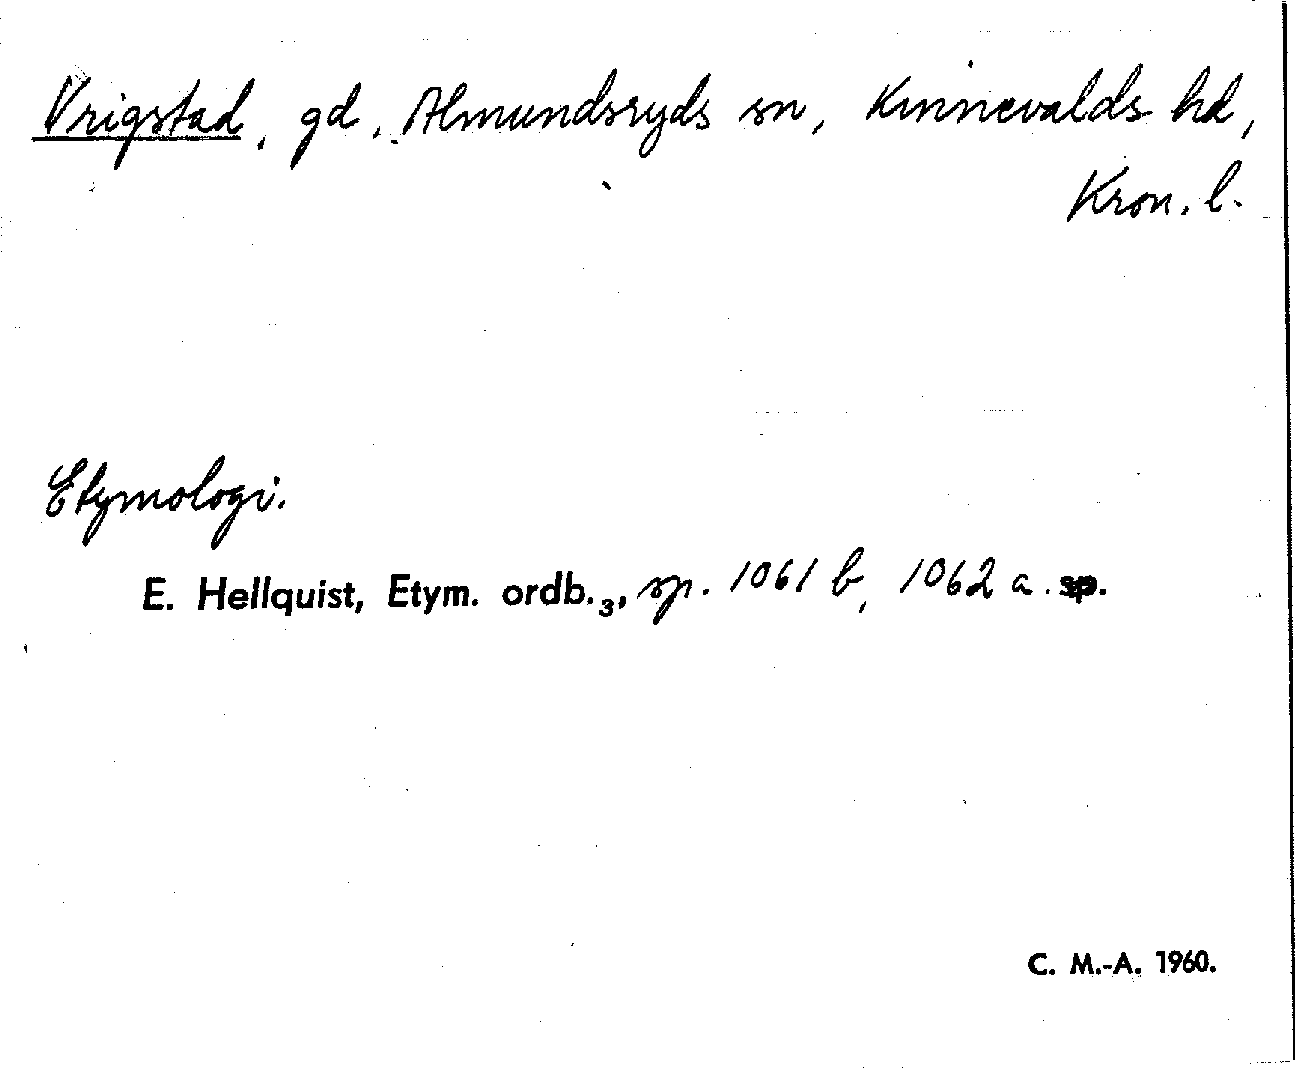 Vrigstad, gd, Almundsryds sn, Kinnevalds hd,
Kron. l.
Etymologi.
E. Hellquist, Etym. ordb.₃, sp. 1061 b, 1062 a. sp.
C. M.-A. 1960.